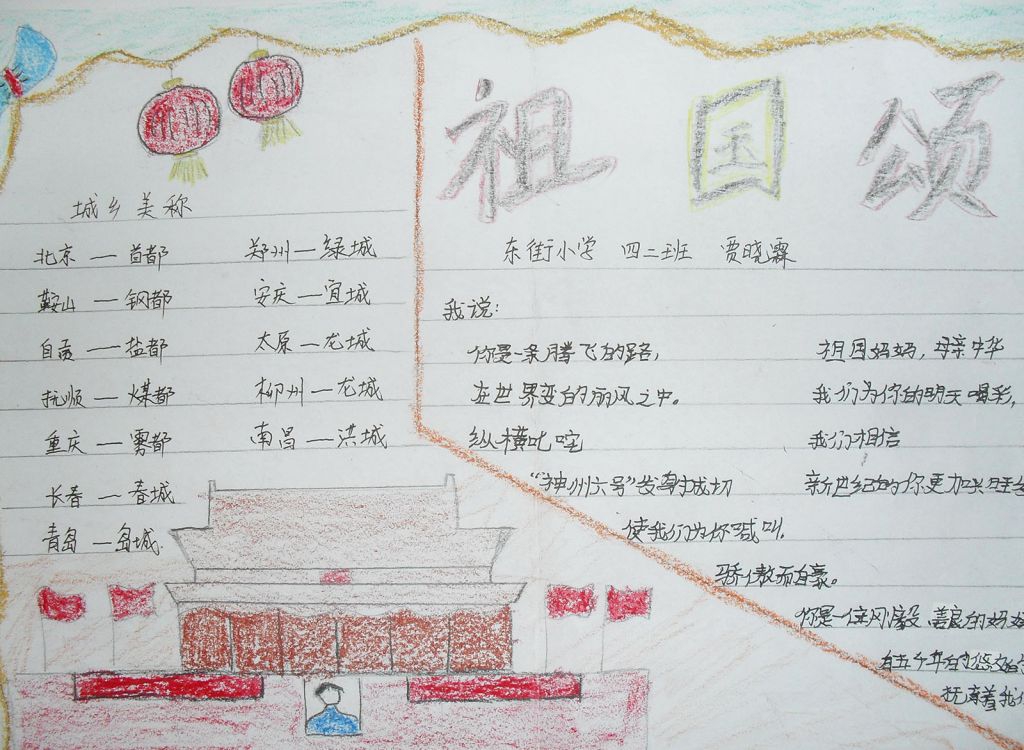 祖国颂
东街小学 四二班 贾晓霖
城乡美称
北京—首都 郑州—绿城
鞍山—钢都 安庆—宜城
自贡—盐都 太原—龙城
抚顺—煤都 柳州—龙城
重庆—雾都 南昌—洪城
长春—春城
青岛—岛城
我说：
你是一条腾飞的路，
在世界变的丽风之中。
纵横叱咤
“神州六号”发射成功
使我们为你喊叫.
骄傲而自豪。
你是一位刚毅、善良的妈妈
有五千年的悠久
抚育着我们
祖国妈妈，母亲中华
我们为你的明天喝彩，
我们相信
新世纪的你更加兴旺